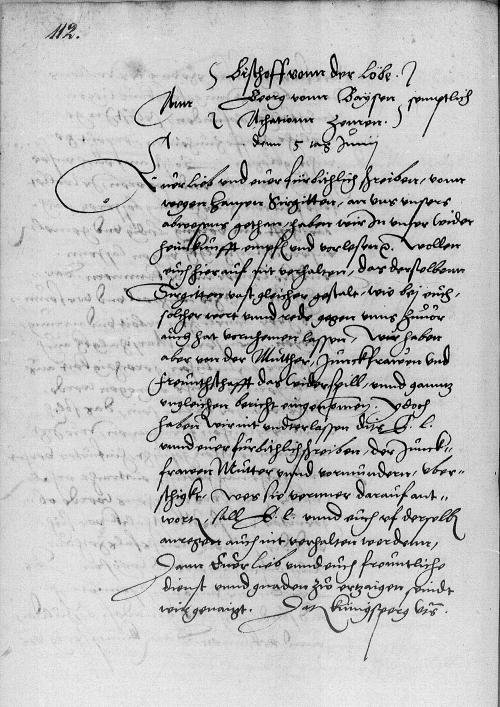 112.
Bischoff vonn der Löbe.
Ann Georg vonn Baysen semptlich
Achatium Zemen.
dem 5 tag Junij
Euer lieb vnd euer fürbitlich schreiben, vonn
wegen Hansen Sirgitten, an vns vnsers
abwesens gethan, haben wir In vnser wider
heimkunfft empf. vnd vorlesen. Wollen
euch hierauf nit verhalten, das derselbenn
Sirgitten vast gleicher gestalt, wie bei euch,
solcher wort vnnd rede gegen vnns zuuor
auch hat vornehmen lassen, Wir haben
aber von der Mutther, Junckfrawen vnd
freuntschafft das widerspill, vnnd gannz
vngleichen bericht eingenomen, Idoch
haben wir nit vnderlassen diese E. l.
vnnd euer fürbitlich schreiben, der Junck-
frawen Mutter vnnd vormundern, vber-
schigkt, Wes sie vermer darauf ant-
wort, soll E. l. vnnd euch vf derselb
anregen auch nit verhalten werdenn,
Dann Euer lieb vnnd euch freuntliche
dienst vnnd gnaden zu ertzaigen seindt
wir genaigt. Dat. Künigsperg vts.